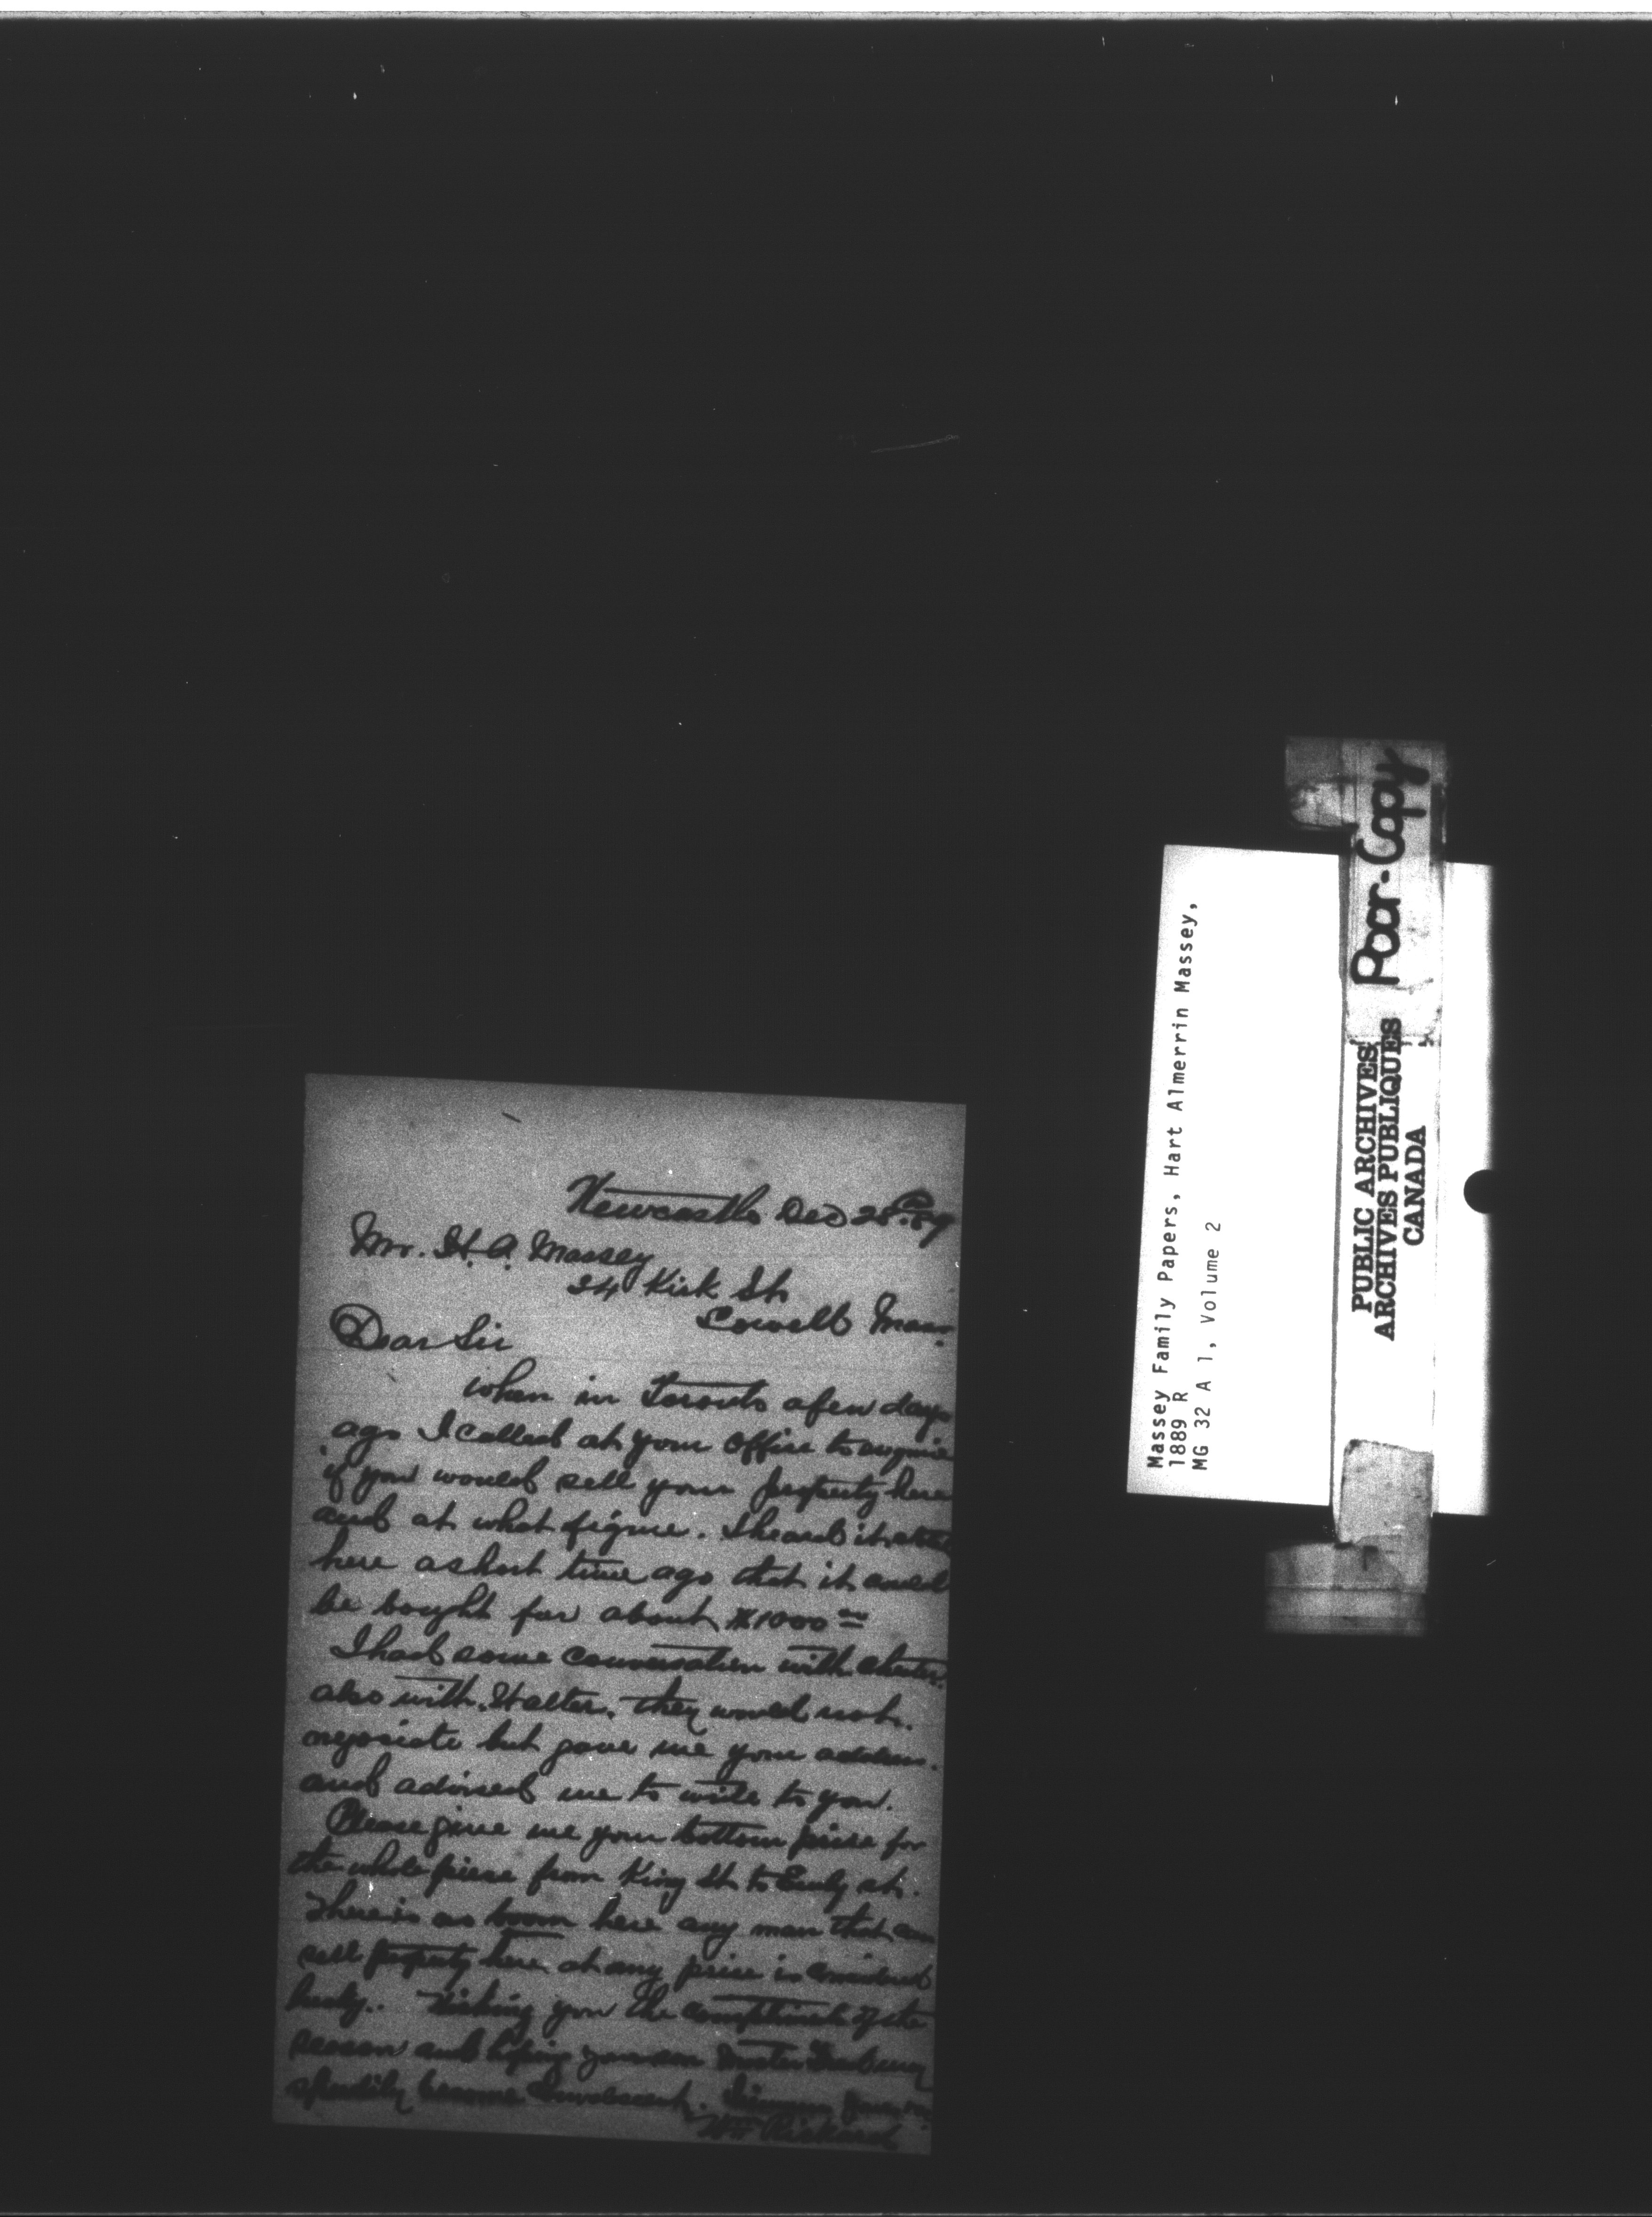 Newcastle Dec 28th 89
Mr. H. A. Massey
24 Kirk St
Lowell Mass.
Dear Sir
when in Toronto a few days
ago I called at your office to enquire
if you would sell your property here
and at what figure. I heard it stated
here a short time ago that it could
be bought for about $1000
I had some conversation with Chester.
also with Walter. they would not.
negociate but gave me your address.
and advised me to write to you.
Please give me your bottom price for
the whole piece from King St to Emily st.
There is no boom here any man that can
sell property here at any price is considered
lucky. Wishing you the compliments of the
season and hoping your son
speedily become convalescent.
Wm Rickard
Massey Family Papers, Hart Almerrin Massey,
1889 R
MG 32 A 1, Volume 2
Poor-Copy
PUBLIC ARCHIVES
ARCHIVES PUBLIQUES
CANADA